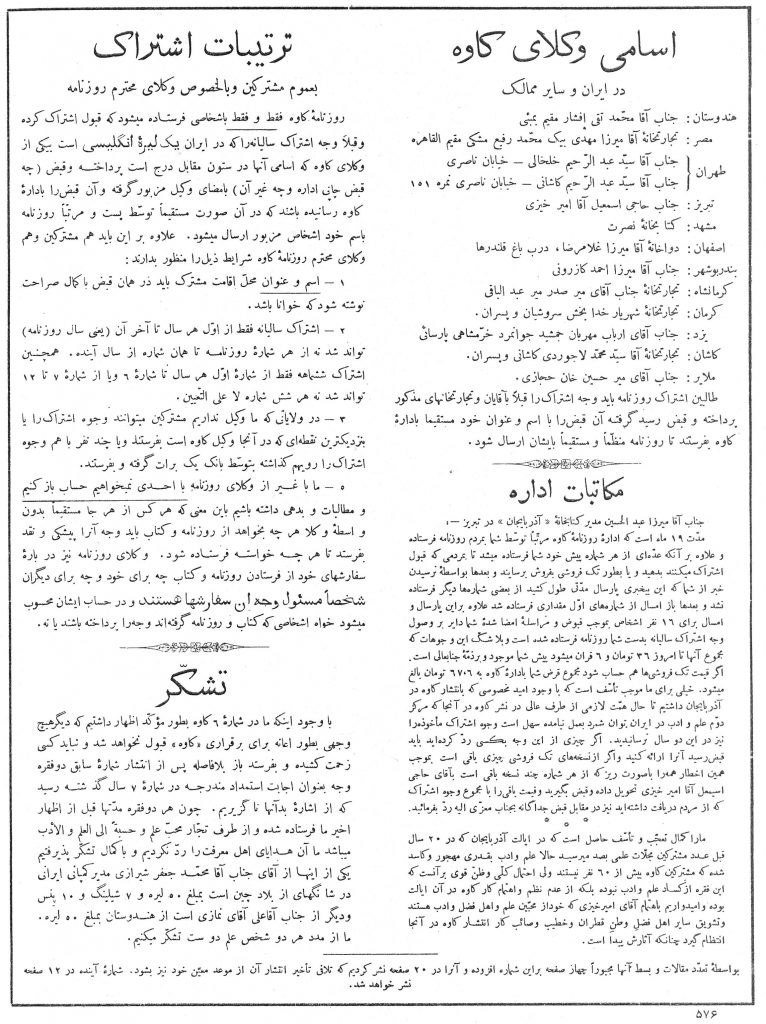 اسامی وکلای کاوه
در ایران و سایر ممالک
هندوستان: جناب آقا محمّد تقی افشار مقیم بمبئی
مصر: تجارتخانهٔ آقا میرزا مهدی بیک محمّد رفیع مشکی مقیم القاهره
طهران { جناب آقا سیّد عبد الرّحیم خلخالی – خیابان ناصری
جناب آقا سیّد عبد الرّحیم کاشانی – خیابان ناصری نمره ۱۵۱
تبریز: جناب حاجی اسمعیل آقا امیر خیزی
مشهد: کتابخانهٔ نصرت
اصفهان: دواخانهٔ آقا میرزا غلامرضاء درب باغ قلندرها
بندربوشهر: جناب آقا میرزا احمد کازرونی
کرمانشاه: تجارتخانهٔ جناب آقای میر صدر میر عبد الباقی
کرمان: تجارتخانهٔ شهریار خدا بخش سروشیان و پسران.
یزد: جناب آقای ارباب مهربان جمشید جوانمرد خرّمشاهی پارسائی
کاشان: تجارتخانهٔ آقا سیّد محمّد لاجوردی کاشانی و پسران.
ملایر: جناب آقای میر حسین خان حجازی.
طالبین اشتراک روزنامه باید وجه اشتراک را قبلاً بآقایان و تجارتخانهای مذکور
پرداخته و قبض رسید گرفته آن قبض را با اسم و عنوان خود مستقیما بادارهٔ
کاوه بفرستند تا روزنامه منظّماً و مستقیماً بایشان ارسال شود.
مکاتبات اداره
جناب آقا میرزا عبد الحسین مدیر کتابخانهٔ «آذربایجان» در تبریز —:
مدّت ۱۹ ماه است که ادارهٔ روزنامهٔ کاوه مرتّباً توسّط شما بمردم روزنامه فرستاده
و علاوه بر آنکه عدّه‌ای از هر شماره پیش خود شما فرستاده میشد تا بمردمی که قبول
اشتراک میکنند بدهید و یا بطور تک فروشی بفروش برسانید و بعدها بواسطهٔ نرسیدن
خبر از شما که این بیخبری پارسال مدّتی طول کشید از بعضی شماره‌ها دیگر فرستاده
نشد و بعدها باز امسال از شماره‌های اوّل مقداری فرستاده شد علاوه براین پارسال و
امسال برای ۱۶ نفر اشخاص بموجب قبوض و مراسلهٔ امضا شدهٔ شما دایر بر وصول
وجه اشتراک سالیانه بدست شما روزنامه فرستاده شده است و بلا شکّ این وجوهات که
مجموع آنها تا امروز ۳۶ تومان و ۶ قران میشود پیش شما موجود و برذمّهٔ جنابعالی است.
اگر قیمت تک فروشی‌ها هم حساب شود مجموع قرض شما بادارهٔ کاوه به ۶۷۰۶ تومان بالغ
میشود. خیلی برای ما موجب تأسّف است که با وجود امید مخصوصی که بانتشار کاوه در
آذربایجان داشتیم تا حال همّت لازمی از طرف عالی در نشر کاوه در آنجا که مرکز
دوّم علم و ادب در ایران توان شمرد بعمل نیامده سهل است وجوه اشتراک مأخوذه را
نیز در این دو سال نرسانیدید. اگر چیزی از این وجه بکسی ردّ کرده‌اید باید
قبض رسید آنرا ارائه کنید و اگر ازنسخه‌های تک فروشی چیزی باقی است بموجب
همین اخطار همه را باصورت ریز که از هر شماره چند نسخه باقی است بآقای حاجی
اسمعیل آقا امیر خیزی تحویل داده و قبض بگیرید و قیمت باقی را با مجموع وجوه اشتراک
که از مردم دریافت داشته‌اید نیز در مقابل قبض جداگانه بجناب معزّی الیه ردّ بفرمائید.
ما را کمال تعجّب و تأسّف حاصل است که در ایالت آذربایجان که در ۲۰ سال
قبل عدد مشترکین مجلّات علمی بصد میرسید حالا علم و ادب بقدری مهجور و کاسد
شده که مشترکین کاوه بیش از ۶۰ نفر نیستند ولی احتمال کلّی و ظنّ قوی برآنست که
این فقره ازکساد علم و ادب نبوده بلکه از عدم نظم و اهتمام کار کاوه در آن ایالت
بوده و امیدواریم باهتمام آقای امیرخیزی که خود از محبّین علم و اهل فضل و ادب هستند
و تشویق سایر اهل فضل وطن قطران وخطیب وصائب کار انتشار کاوه در آنجا
انتظام گیرد چنانکه آثارش پیدا است.
ترتیبات اشتراک
بعموم مشترکین وبالخصوص وکلای محترم روزنامه
روزنامهٔ کاوه فقط و فقط باشخاصی فرستاده میشود که قبول اشتراک کرده
وقبلاً وجه اشتراک سالیانه را که در ایران یک لیرهٔ انگلیسی است بیکی از
وکلای کاوه که اسامی آنها در ستون مقابل درج است پرداخته وقبض (چه
قبض چاپی اداره وچه غیر آن) بامضای وکیل مزبور گرفته و آن قبض را بادارهٔ
کاوه رسانیده باشند که در آن صورت مستقیماً توسّط پست و مرتّباً روزنامه
باسم خود اشخاص مزبور ارسال میشود. علاوه بر این باید هم مشترکین وهم
وکلای محترم روزنامهٔ کاوه شرایط ذیل را منظور بدارند:
۱ – اسم و عنوان محلّ اقامت مشترک باید در همان قبض باکمال صراحت
نوشته شود که خوانا باشد.
۲ – اشتراک سالیانه فقط از اوّل هر سال تا آخر آن (یعنی سال روزنامه)
تواند شد نه از هر شمارهٔ روزنامـه تا همان شماره از سال آینده. همچنین
اشتراک ششماهه فقط از شمارهٔ اوّل هر سال تا شمارهٔ ۶ ویا از شمارهٔ ۷ تا ۱۲
تواند شد نه هر شش شماره لا علی التّعیین.
۳ – در ولایاتی که ما وکیل نداریم مشترکین میتوانند وجوه اشتراک را یا
بنزدیکترین نقطه‌ای که در آنجا وکیل کاوه است بفرستند ویا چند نفر با هم وجوه
اشتراک را رویهم گذاشته بتوسّط بانک یک برات گرفته و بفرستند.
۵ – ما با غیر از وکلای روزنامه با احدی نمیخواهیم حساب باز کنیم
و مطالبات و بدهی داشته باشیم باین معنی که هرکس از هر جا مستقیماً بدون
واسطهٔ وکلا هر چه بخواهد از روزنامه و کتاب باید وجه آنرا پیشکی و نقد
بفرستد تا هر چه خواسته فرستاده شود. وکلای روزنامه نیز در بارهٔ
سفارشهای خود از فرستادن روزنامه و کتاب چه برای خود و چه برای دیگران
شخصاً مسئول وجه آن سفارشها هستند و در حساب ایشان محسوب
میشود خواه اشخاصی که کتاب و روزنامه گرفته‌اند وجه را پرداخته باشند یا نه.
تشکّر
با وجود اینکه ما در شمارهٔ ۶ کاوه بطور مؤکّد اظهار داشتیم که دیگرهیچ
وجهی بطور اعانه برای برقراری «کاوه» قبول نخواهد شد و نباید کسی
زحمت کشیده و بفرستد باز بلافاصله پس از انتشار شمارهٔ سابق دوفقره
وجه بعنوان اجابت استمداد مندرجه در شمارهٔ ۷ سال گذشته رسید
که از اشارهٔ بدآنها ناگزیریم. چون هر دوفقره مدّتها قبل از اظهار
اخیر ما فرستاده شده و از طرف تجّار محبّ علم و حسبةً الی العلم و الأدب
میباشد ما آن هدایای اهل معرفت را ردّ نکردیم و باکمال تشکّر پذیرفتیم
یکی از اینها از آقای جناب آقا محمّد جعفر شیرازی مدیرکمپانی ایرانی
در شانگهای از بلاد چین است بمبلغ ۵۰ لیره و ۷ شیلنگ و ۱۰ پنس
ودیگر از جناب آقاعلی آقای نمازی است از هندوستان بمبلغ ۵۰ لیره.
ما از مدد هر دو شخص علم دوست تشکّر میکنیم.
بواسطهٔ تعدّد مقالات و بسط آنها مجبوراً چهار صفحه براین شماره افزوده و آنرا در ۲۰ صفحه نشر کردیم که تلافی تأخیر انتشار آن از موعد معیّن خود نیز بشود. شمارهٔ آینده در ۱۲ صفحه
نشر خواهد شد.
۵۷۶